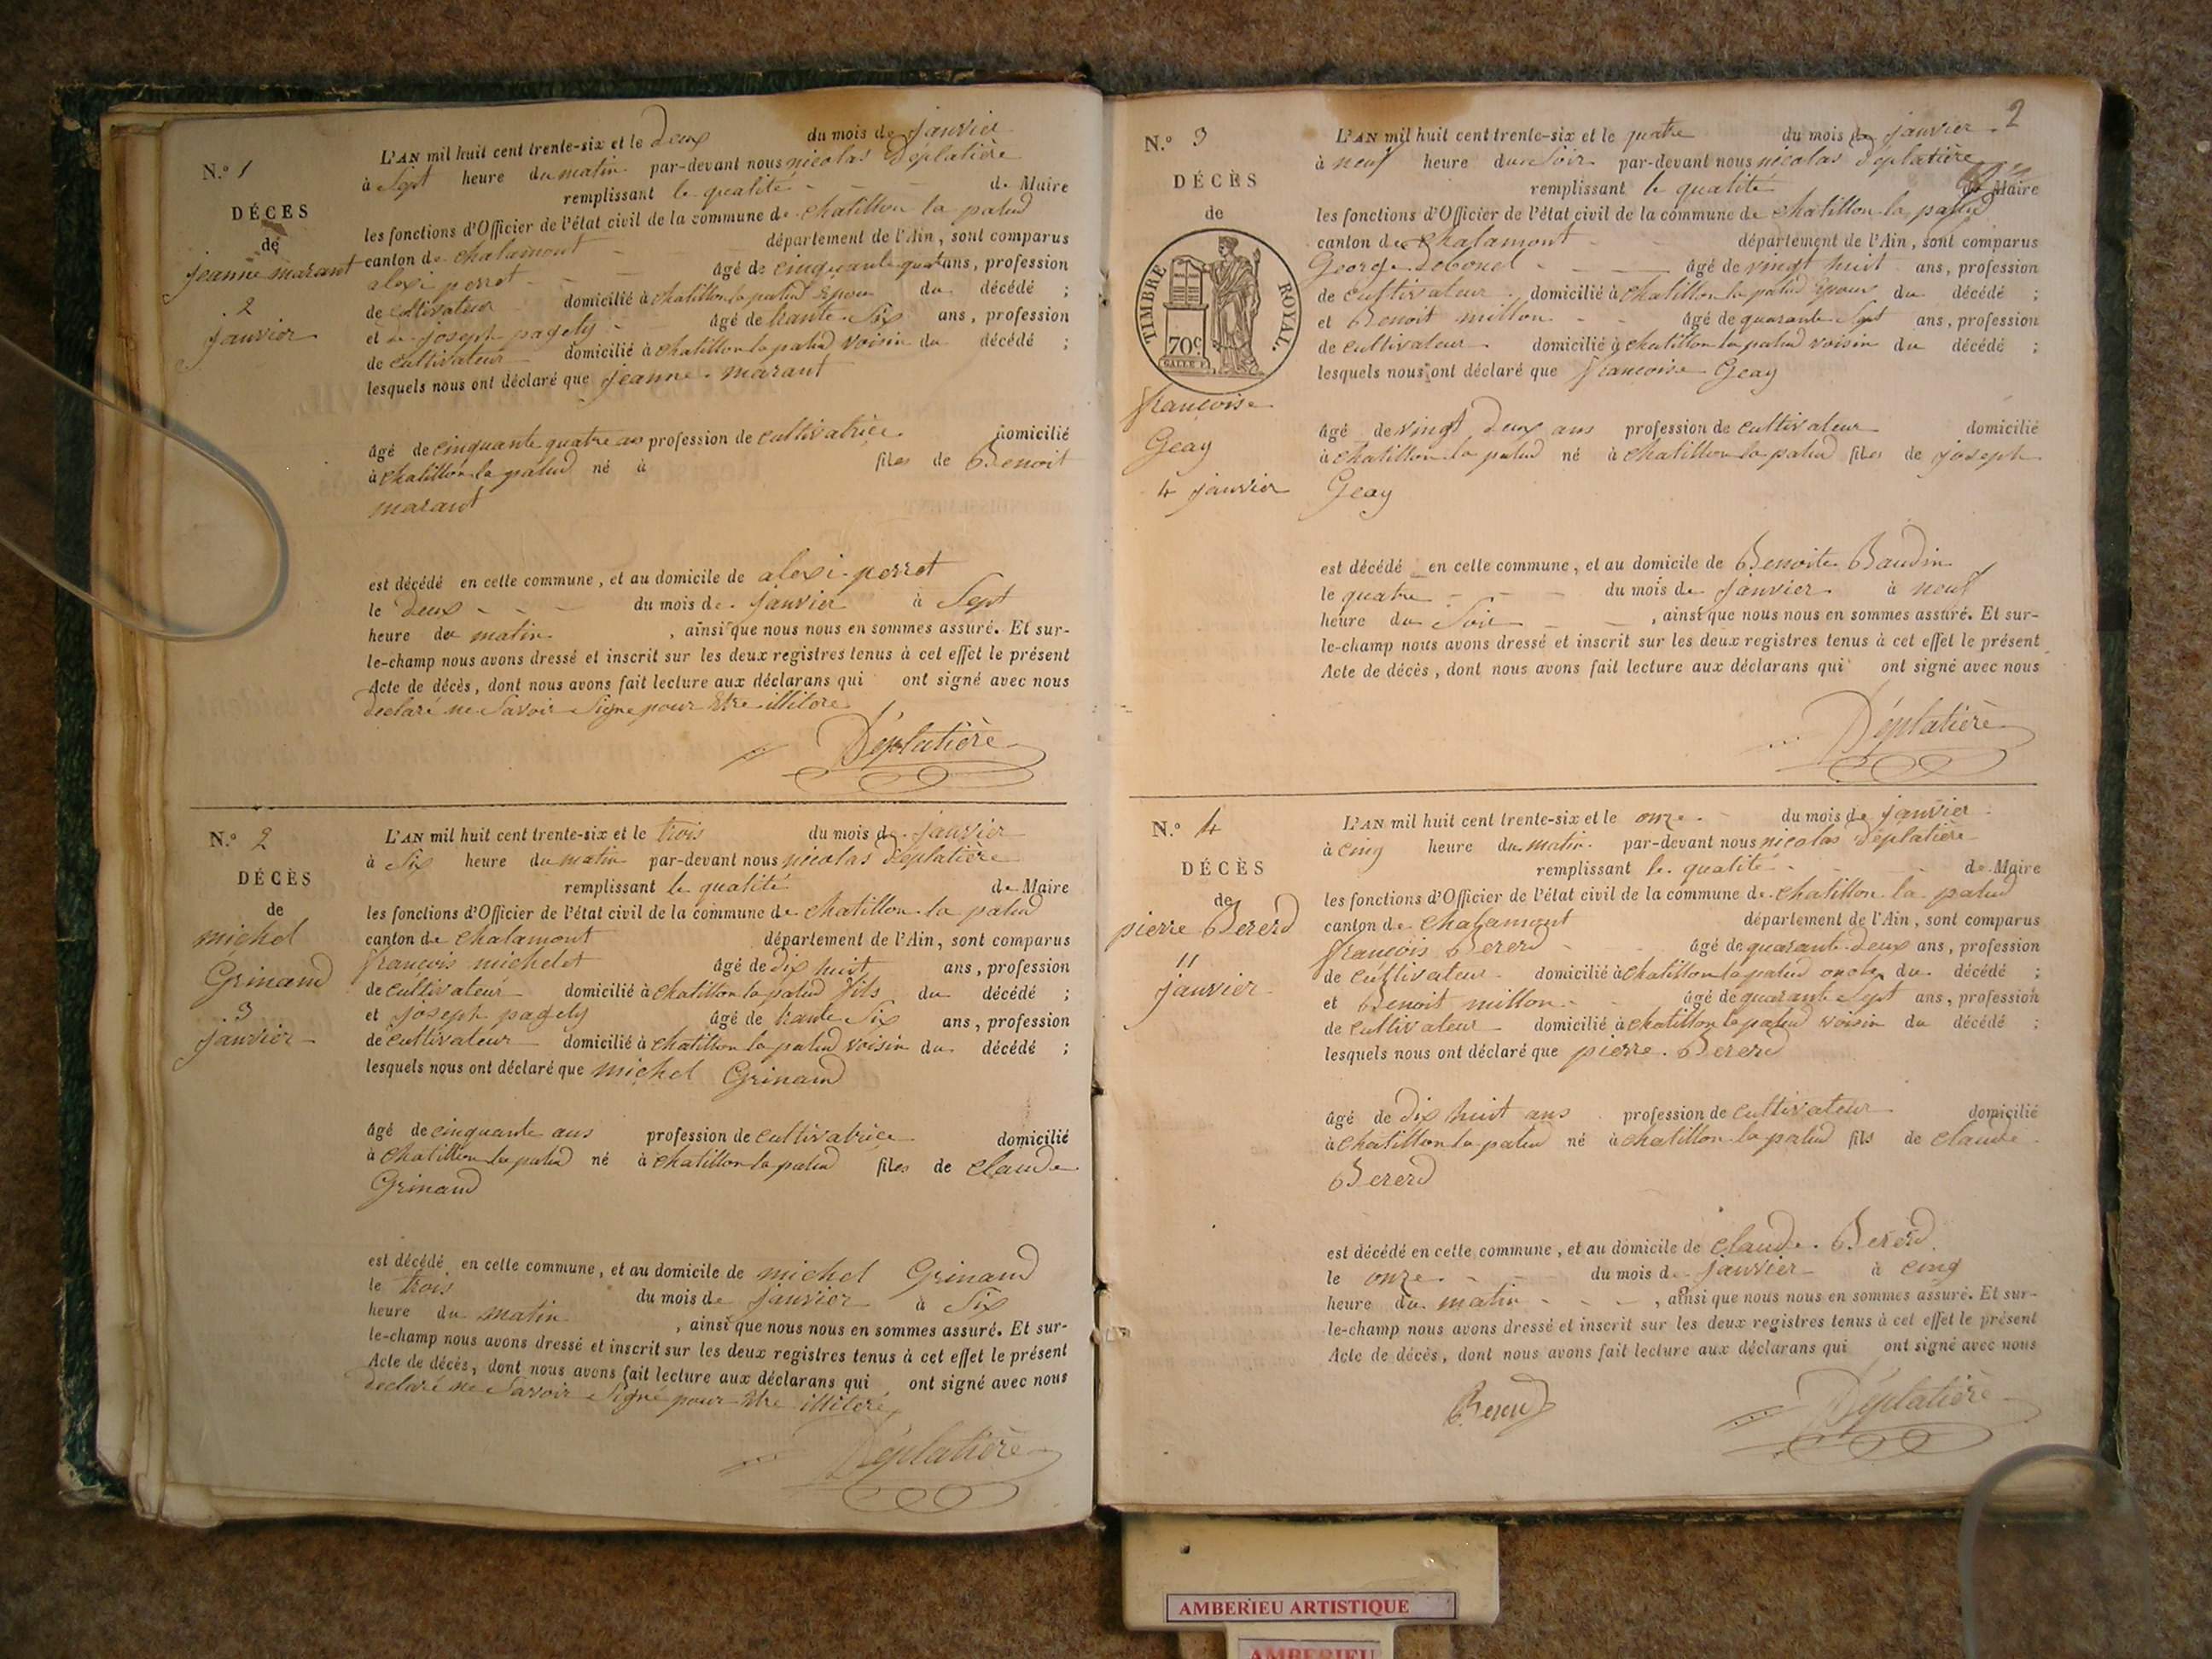 N.o 1
DÉCES
de
jeanne marant
2
janvier
L'AN mil huit cent trente-six et le deux du mois de janvier
à sept heure du matin par-devant nous nicolas Déplatière
remplissant le qualité de Maire
les fonctions d'Officier de l'état civil de la commune de chatillon la palud
canton de chalamont département de l'Ain, sont comparus
alexi perret âgé de cinquante quat ans, profession
de cltivateur domicilié à chatillon la palud époux du décédé ;
et joseph pagely âgé de trante Six ans, profession
de cultivateur domicilié à chatillon la palud voisin du décédé ;
lesquels nous ont déclaré que jeanne marant
âgé de cinquante quatre ans profession de cultivatrice domicilié
à chatillon la palud né à files de Benoit
marant
est décédé en cette commune, et au domicile de alexi perret
le deux du mois de janvier à Sept
heure du matin, ainsi que nous nous en sommes assuré. Et sur-
le-champ nous avons dressé et inscrit sur les deux registres tenus à cet effet le présent
Acte de décès, dont nous avons fait lecture aux déclarans qui ont signé avec nous
declaré ne Savoir Signe pour être illitere
Déplatière
N.o 2
DÉCÈS
de
michel
Grinand
3
janvier
L'AN mil huit cent trente-six et le trois du mois de janvier
à Six heure du matin par-devant nous nicolas Déplatière
remplissant le qualité de Maire
les fonctions d'Officier de l'état civil de la commune de chatillon la palud
canton de chalamont département de l'Ain, sont comparus
francois michelet âgé de dix huit ans, profession
de cultivateur domicilié à chatillon la palud fils du décédé ;
et joseph pagely âgé de trante Six ans, profession
de cultivateur domicilié à chatillon la palud voisin du décédé ;
lesquels nous ont déclaré que michel Grinand
âgé de cinquante ans profession de cultivatrice domicilié
à chatillon la palud né à chatillon la palud files de claude
Grinand
est décédé en cette commune, et au domicile de michel Grinand
le trois du mois de janvier à Six
heure du matin, ainsi que nous nous en sommes assuré. Et sur-
le-champ nous avons dressé et inscrit sur les deux registres tenus à cet effet le présent
Acte de décès, dont nous avons fait lecture aux déclarans qui ont signé avec nous
declaré ne Savoir Signé pour être illiteré
Déplatière
2
N.o 3
DÉCÈS
de
TIMBRE ROYAL.
70c
francoise
Geay
4 janvier
L'AN mil huit cent trente-six et le quatre du mois de janvier
à neuf heure du Soir par-devant nous nicolas Déplatière
remplissant le qualité de Maire
les fonctions d'Officier de l'état civil de la commune de chatillon la palud
canton de chalamont département de l'Ain, sont comparus
George âgé de vingt huit ans, profession
de cultivateur domicilié à chatillon la palud époux du décédé ;
et Benoit millon âgé de quarante Sept ans, profession
de cultivateur domicilié à chatillon la palud voisin du décédé ;
lesquels nous ont déclaré que francoise Geay
âgé de vingt deux ans profession de cultivateur domicilié
à chatillon la palud né à chatillon la palud files de joseph
Geay
est décédé en cette commune, et au domicile de Benoite Baudin
le quatre du mois de janvier à neuf
heure du Soir, ainsi que nous nous en sommes assuré. Et sur-
le-champ nous avons dressé et inscrit sur les deux registres tenus à cet effet le présent
Acte de décès, dont nous avons fait lecture aux déclarans qui ont signé avec nous
Déplatière
N.o 4
DÉCÈS
de
pierre Bererd
11
janvier
L'AN mil huit cent trente-six et le onze du mois de janvier
à cinq heure du matin par-devant nous nicolas Déplatière
remplissant le qualité de Maire
les fonctions d'Officier de l'état civil de la commune de chatillon la palud
canton de chalamont département de l'Ain, sont comparus
françois Bererd âgé de quarante deux ans, profession
de cultivateur domicilié à chatillon la palud oncle du décédé ;
et Benoit millon âgé de quarante Sept ans, profession
de cultivateur domicilié à chatillon la palud voisin du décédé ;
lesquels nous ont déclaré que pierre Bererd
âgé de dix huit ans profession de cultivateur domicilié
à chatillon la palud né à chatillon la palud fils de claude
Bererd
est décédé en cette commune, et au domicile de claude Bererd
le onze du mois de janvier à cinq
heure du matin, ainsi que nous nous en sommes assuré. Et sur-
le-champ nous avons dressé et inscrit sur les deux registres tenus à cet effet le présent
Acte de décès, dont nous avons fait lecture aux déclarans qui ont signé avec nous
Bererd Déplatière
AMBERIEU ARTISTIQUE
AMBERIEU